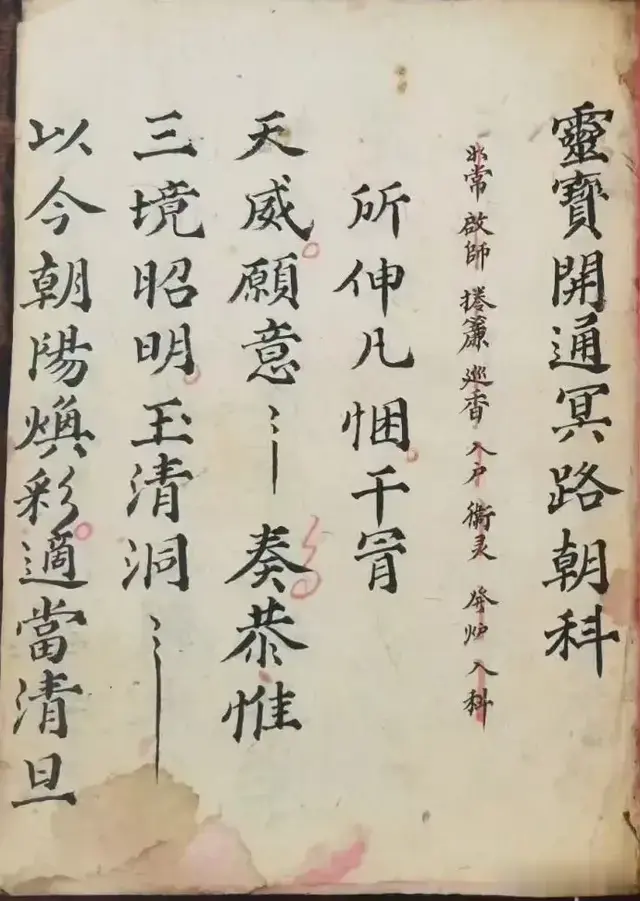 靈寶開通冥路朝科
如常 啟師 捲簾 巡香 入户 衛灵 發炉 入科
所伸凡悃干冒
天威願意〻奏恭惟
三境昭明玉清洞〻
以今朝陽煥彩適當清旦